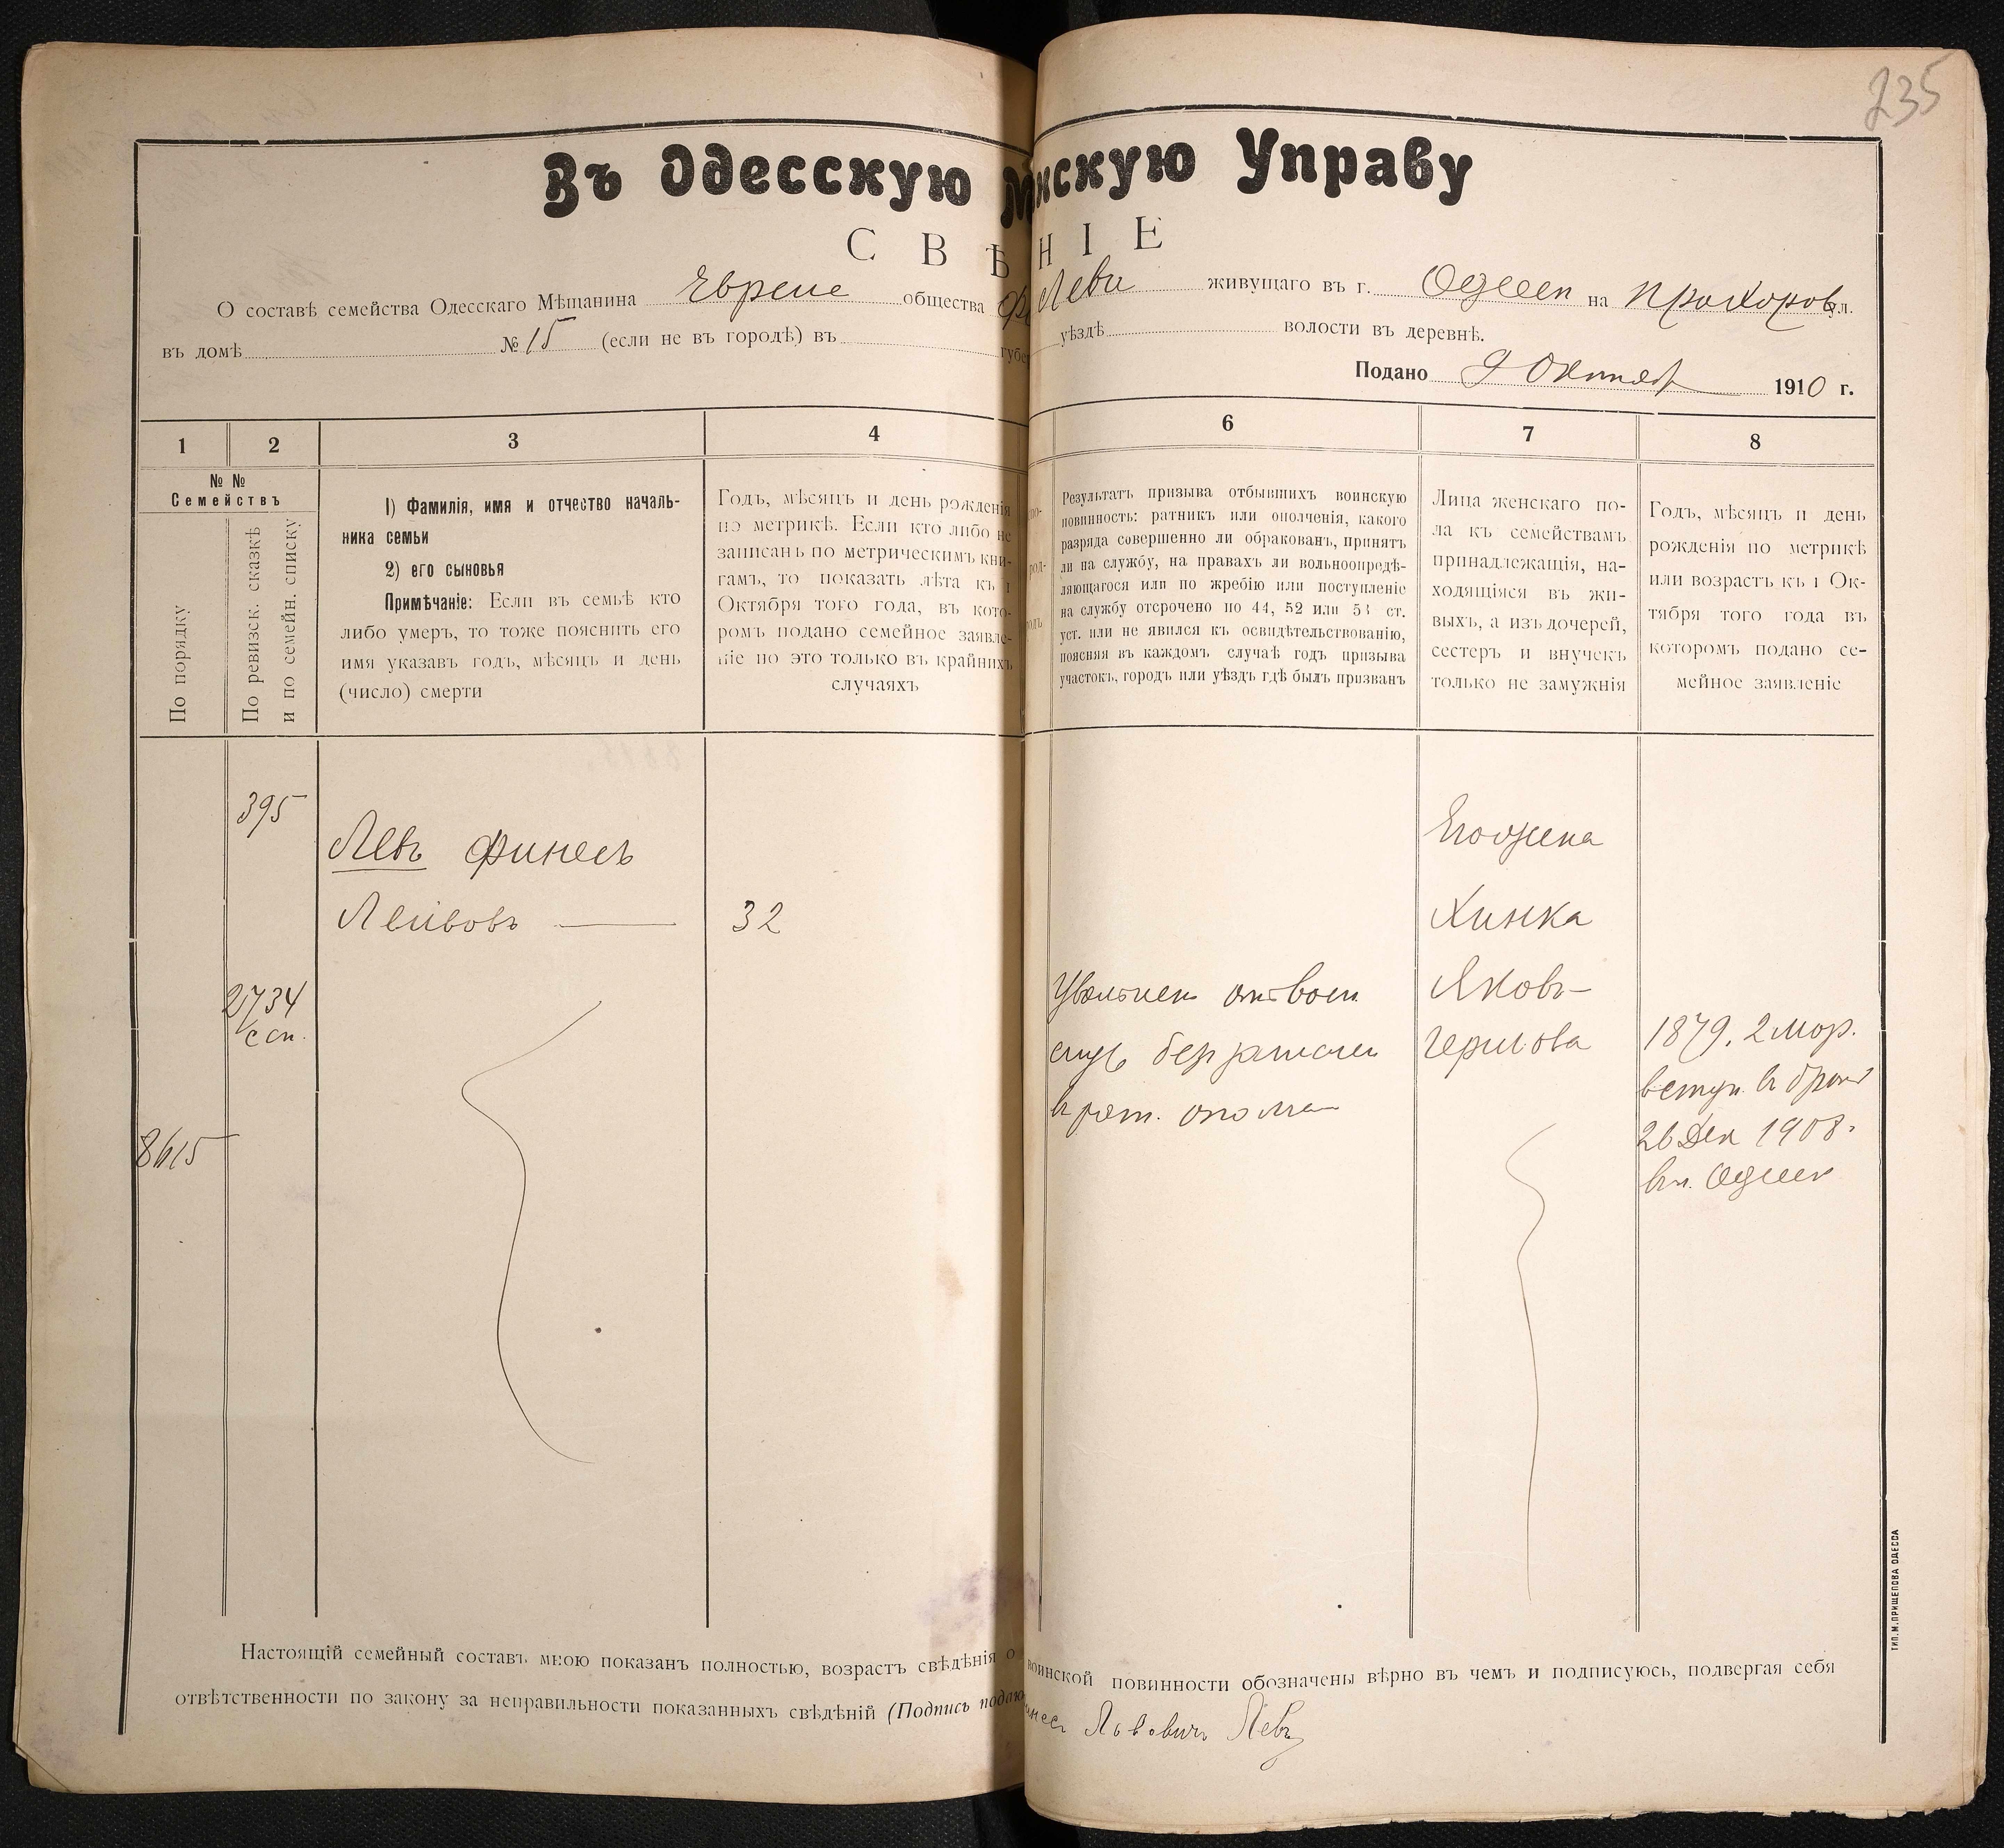 235
Въ Одесскую М нскую Управу
СВѢ НІЕ
О составѣ семейства Одесскаго Мѣщанина Евреис общества Ф Леви живущаго въ г. Одессѣ на Прохоров ул.
въ домѣ № 15 (если не въ городѣ) въ губе уѣздѣ волости въ деревнѣ.
Подано 9 Октября 1910 г.
1 2 3 4 6 7 8
№ №
Семействъ
По порядку
По ревизск. сказкѣ
и по семейн. списку
1) Фамилія, имя и отчество началь-
ника семьи
2) его сыновья
Примѣчаніе: Если въ семьѣ кто
либо умеръ, то тоже пояснить его
имя указавъ годъ, мѣсяцъ и день
(число) смерти
Годъ, мѣсяцъ и день рожденія
по метрикѣ. Если кто либо не
записанъ по метрическимъ кни-
гамъ, то показать лѣта къ 1
Октября того года, въ кото-
ромъ подано семейное заявле-
ніе но это только въ крайнихъ
случаяхъ
Результатъ призыва отбывшихъ воинскую
повинность: ратникъ или ополченія, какого
разряда совершенно ли обракованъ, принятъ
ли на службу, на правахъ ли вольноопредѣ-
ляющагося или по жребію или поступленіе
на службу отсрочено по 44, 52 или 53 ст.
уст. или не явился къ освидѣтельствованію,
поясняя въ каждомъ случаѣ годъ призыва
участокъ, городъ или уѣздъ гдѣ былъ призванъ
Лица женскаго по-
ла къ семействамъ
принадлежащія, на-
ходящіяся въ жи-
выхъ, а изъ дочерей,
сестеръ и внучекъ
только не замужнія
Годъ, мѣсяцъ и день
рожденія по метрикѣ
или возрастъ къ 1 Ок-
тября того года въ
которомъ подано се-
мейное заявленіе
395
Левъ Финесъ
Лейбовъ — 32
2734
с сп.
8615
Уволенъ отъ воен
служ без зачислен
в рат. ополче
Его жена
Хинка
Яковъ-
Гершова
1879. 2 мар.
вступ. в брак
26 Дек 1908.
в г. Одессе
Настоящій семейный составъ мною показанъ полностью, возрастъ свѣдѣнія о воинской повинности обозначены вѣрно въ чемъ и подписуюсь, подвергая себя
отвѣтственности по закону за неправильности показанныхъ свѣдѣній (Подпись подаю нес Львовичъ Левъ
ТИП. М. ПРИЩЕПОВА ОДЕССА